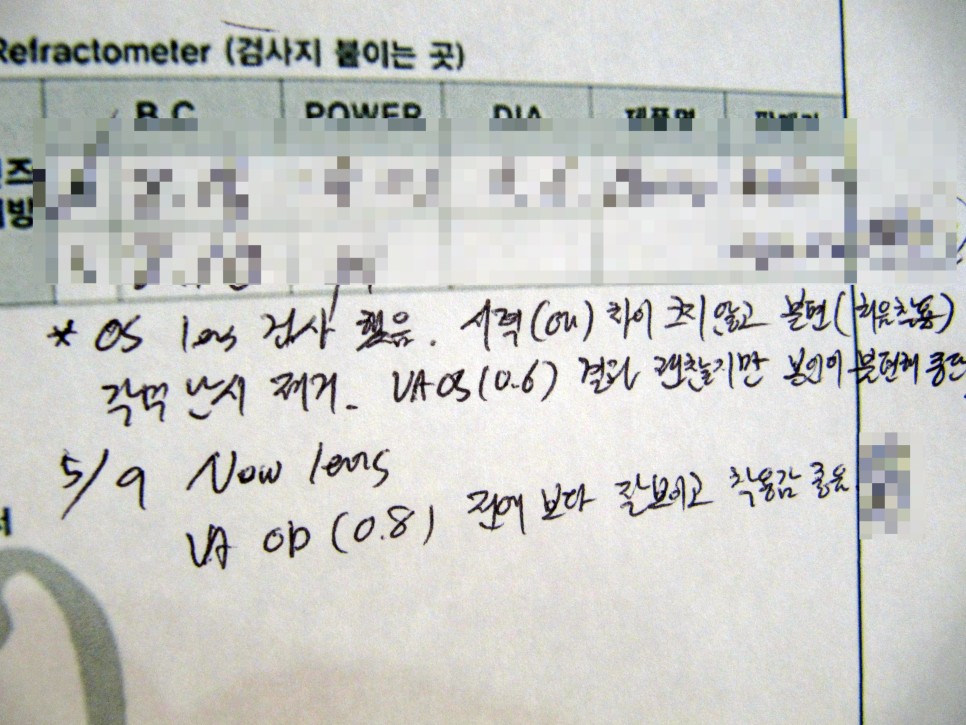 Refractometer (검사지 붙이는 곳)
B.C POWER DIA 제품명
즈
빙
* OS lens 검사 했음. 시력(ou) 차이 크지 않고 불편(처음착용)
각막 난시 제거. VA OS (0.6) 결과 괜찮지만 본인이 불편해 중단
5/9 Now lens
VA OD (0.8) 전에 보다 잘보이고 착용감 좋음
서